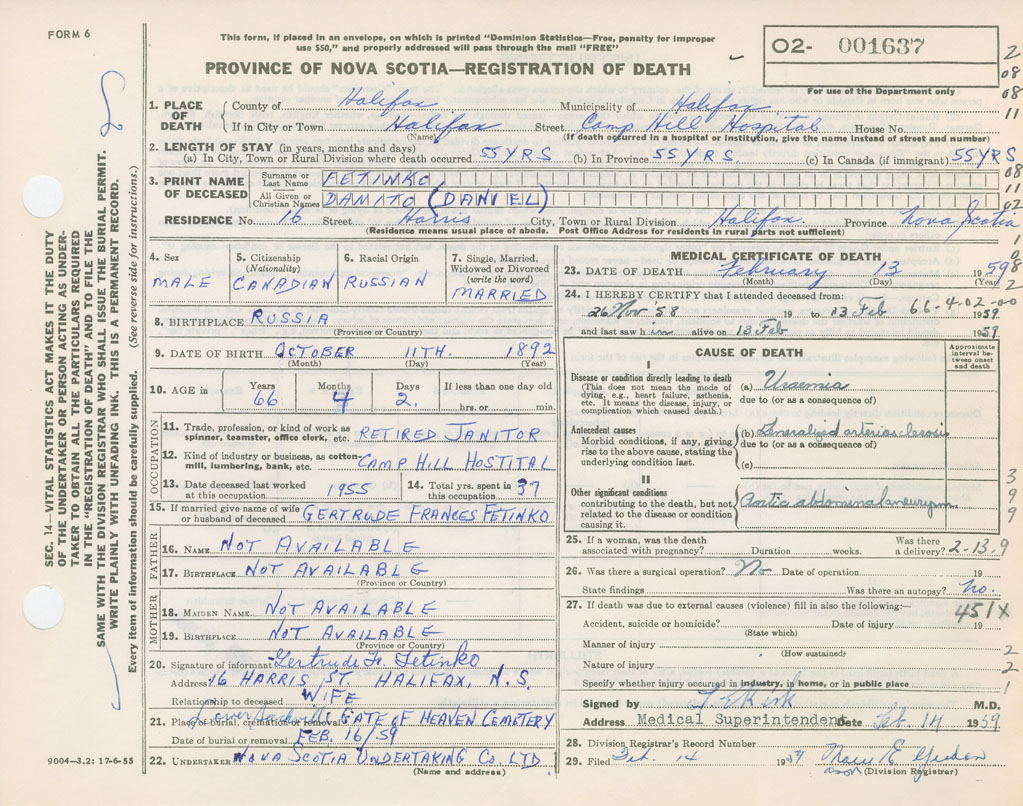 FORM 6
This form, if placed in an envelope, on which is printed "Dominion Statistics—Free, penalty for improper
use $50," and properly addressed will pass through the mail "FREE"
PROVINCE OF NOVA SCOTIA—REGISTRATION OF DEATH
02- 001637
For use of the Department only
2
08
08
11
08
11
02
1
0
8
2
SEC. 14—VITAL STATISTICS ACT MAKES IT THE DUTY
OF THE UNDERTAKER OR PERSON ACTING AS UNDER-
TAKER TO OBTAIN ALL THE PARTICULARS REQUIRED
IN THE "REGISTRATION OF DEATH" AND TO FILE THE
SAME WITH THE DIVISION REGISTRAR WHO SHALL ISSUE THE BURIAL PERMIT.
WRITE PLAINLY WITH UNFADING INK. THIS IS A PERMANENT RECORD.
Every item of information should be carefully supplied. (See reverse side for instructions.)
1. PLACE OF DEATH
County of Halifax Municipality of Halifax
If in City or Town Halifax Street Camp Hill Hospital House No.
(Name) (If death occurred in a hospital or institution, give the name instead of street and number)
2. LENGTH OF STAY (in years, months and days)
(a) In City, Town or Rural Division where death occurred 55 YRS (b) In Province 55 YRS. (c) In Canada (if immigrant) 55 YRS
3. PRINT NAME OF DECEASED
Surname or Last Name FETINKO
All Given or Christian Names DAMITO (DANIEL)
RESIDENCE No. 16 Street Harris City, Town or Rural Division Halifax. Province Nova Scotia
(Residence means usual place of abode. Post Office Address for residents in rural parts not sufficient)
4. Sex
MALE
5. Citizenship
(Nationality)
CANADIAN
6. Racial Origin
RUSSIAN
7. Single, Married,
Widowed or Divorced
(write the word)
MARRIED
8. BIRTHPLACE RUSSIA
(Province or Country)
9. DATE OF BIRTH OCTOBER 11TH. 1892
(Month) (Day) (Year)
10. AGE in
Years Months Days If less than one day old
66 4 2. hrs. or min.
OCCUPATION
11. Trade, profession, or kind of work as
spinner, teamster, office clerk, etc. RETIRED JANITOR
12. Kind of industry or business, as cotton-
mill, lumbering, bank, etc. CAMP HILL HOSTITAL
13. Date deceased last worked
at this occupation 1955
14. Total yrs. spent in
this occupation 37
15. If married give name of wife
or husband of deceased GERTRUDE FRANCES FETINKO
FATHER
16. NAME NOT AVAILABLE
17. BIRTHPLACE NOT AVAILABLE
(Province or Country)
MOTHER
18. MAIDEN NAME NOT AVAILABLE
19. BIRTHPLACE NOT AVAILABLE
(Province or Country)
20. Signature of informant Gertrude Fr. Fetinko
Address 16 HARRIS ST. HALIFAX, N.S.
Relationship to deceased WIFE
21. Place of burial, cremation or removal Lower Sackville GATE OF HEAVEN CEMETERY
Date of burial or removal FEB. 16/59
22. UNDERTAKER NOVA SCOTIA UNDERTAKING CO. LTD
(Name and address)
9004—3.2: 17-6-55
MEDICAL CERTIFICATE OF DEATH
23. DATE OF DEATH February 13 1959
(Month) (Day) (Year)
24. I HEREBY CERTIFY that I attended deceased from: 66-4-02-00
26 Nov '58 19 to 13 Feb 1959
and last saw him alive on 13 Feb 1959
CAUSE OF DEATH
Approximate
interval be-
tween onset
and death
I
Disease or condition directly leading to death
(This does not mean the mode of
dying, e.g., heart failure, asthenia,
etc. It means the disease, injury, or
complication which caused death.)
(a) Uraemia
due to (or as a consequence of)
Antecedent causes
Morbid conditions, if any, giving
rise to the above cause, stating the
underlying condition last.
(b) Generalized arteriosclerosis
due to (or as a consequence of)
(c)
II
Other significant conditions
contributing to the death, but not
related to the disease or condition
causing it.
Aortic abdominal aneurysm.
3
9
9
25. If a woman, was the death
associated with pregnancy? Duration weeks.
Was there
a delivery? 2-13.9
26. Was there a surgical operation? No Date of operation 19
State findings Was there an autopsy? No.
27. If death was due to external causes (violence) fill in also the following:— 451X
Accident, suicide or homicide? Date of injury 19
(State which)
Manner of injury 2
(How sustained)
Nature of injury 2
Specify whether injury occurred in industry, in home, or in public place 1
Signed by M.D.
Address Medical Superintendent Date Feb. 14 1959
28. Division Registrar's Record Number
29. Filed Feb. 14 1959
(Division Registrar)